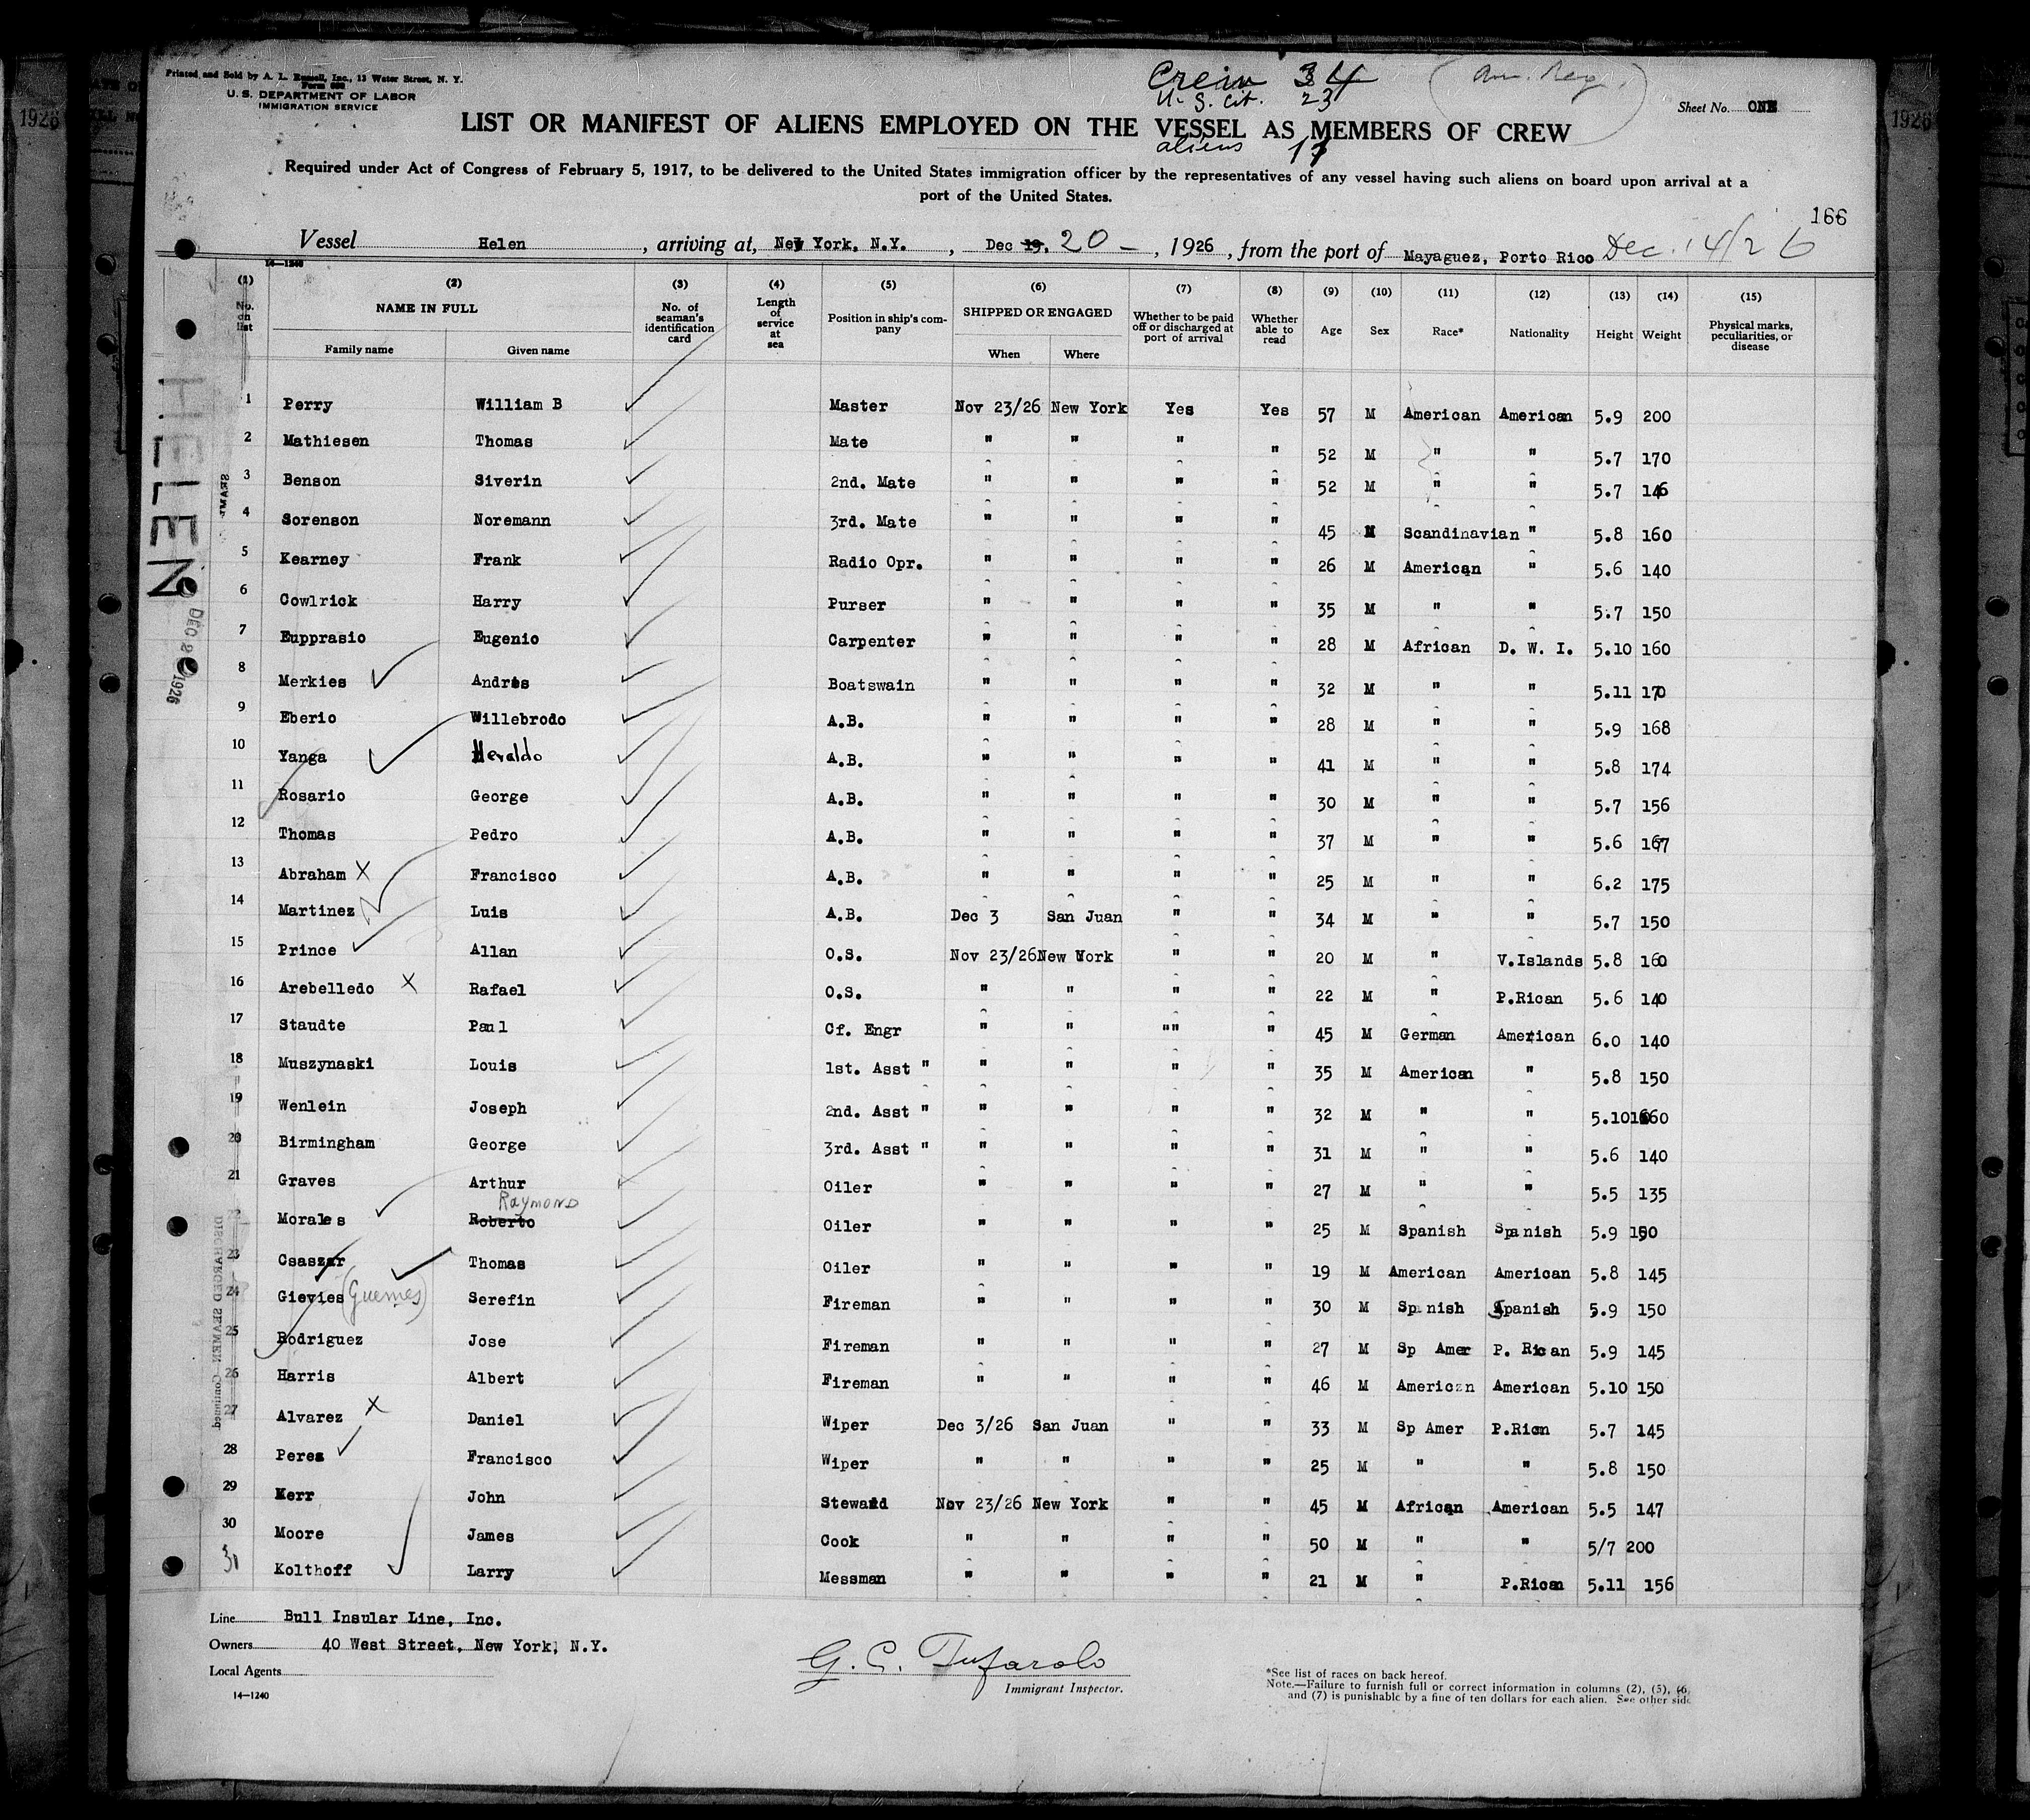 Printed and Sold by A. L. Russell, Inc., 13 Water Street, N. Y.
U. S. DEPARTMENT OF LABOR
IMMIGRATION SERVICE
Crew 34
U. S. Cit. 23
aliens 11
Sheet No. ONE
LIST OR MANIFEST OF ALIENS EMPLOYED ON THE VESSEL AS MEMBERS OF CREW
Required under Act of Congress of February 5, 1917, to be delivered to the United States immigration officer by the representatives of any vessel having such aliens on board upon arrival at a
port of the United States.
166
Vessel Helen , arriving at, New York, N.Y. , Dec 19. 20 – , 1926 , from the port of Mayaguez, Porto Rico Dec. 14/26
14—1240
(1) (2) (3) (4) (5) (6) (7) (8) (9) (10) (11) (12) (13) (14) (15)
No. on list NAME IN FULL No. of seaman's identification card Length of service at sea Position in ship's company SHIPPED OR ENGAGED Whether to be paid off or discharged at port of arrival Whether able to read Age Sex Race* Nationality Height Weight Physical marks, peculiarities, or disease
Family name Given name When Where
1 Perry William B Master Nov 23/26 New York Yes Yes 57 M American American 5.9 200
2 Mathiesen Thomas Mate " " " " 52 M " " 5.7 170
3 Benson Siverin 2nd. Mate " " " " 52 M " " 5.7 146
4 Sorenson Noremann 3rd. Mate " " " " 45 M Scandinavian " 5.8 160
5 Kearney Frank Radio Opr. " " " " 26 M American " 5.6 140
6 Cowlrick Harry Purser " " " " 35 M " " 5.7 150
7 Eupprasio Eugenio Carpenter " " " " 28 M African D. W. I. 5.10 160
8 Merkies Andres Boatswain " " " " 32 M " " 5.11 170
9 Eberio Willebrodo A.B. " " " " 28 M " " 5.9 168
10 Yanga Heraldo A.B. " " " " 41 M " " 5.8 174
11 Rosario George A.B. " " " " 30 M " " 5.7 156
12 Thomas Pedro A.B. " " " " 37 M " " 5.6 167
13 Abraham X Francisco A.B. " " " " 25 M " " 6.2 175
14 Martinez Luis A.B. Dec 3 San Juan " " 34 M " " 5.7 150
15 Prince Allan O.S. Nov 23/26 New York " " 20 M " V.Islands 5.8 160
16 Arebelledo X Rafael O.S. " " " " 22 M " P.Rican 5.6 140
17 Staudte Paul Cf. Engr " " "" " 45 M German American 6.0 140
18 Muszynaski Louis 1st. Asst " " " " " 35 M American " 5.8 150
19 Wenlein Joseph 2nd. Asst " " " " " 32 M " " 5.10 160
20 Birmingham George 3rd. Asst " " " " " 31 M " " 5.6 140
21 Graves Arthur Oiler " " " " 27 M " " 5.5 135
Raymond
22 Morales Roberto Oiler " " " " 25 M Spanish Spanish 5.9 150
23 Csaszar Thomas Oiler " " " " 19 M American American 5.8 145
24 Gievies (Guemes) Serefin Fireman " " " " 30 M Spanish Spanish 5.9 150
25 Rodriguez Jose Fireman " " " " 27 M Sp Amer P. Rican 5.9 145
26 Harris Albert Fireman " " " " 46 M American American 5.10 150
27 Alvarez X Daniel Wiper Dec 3/26 San Juan " " 33 M Sp Amer P.Rican 5.7 145
28 Perez Francisco Wiper " " " " 25 M " " 5.8 150
29 Kerr John Steward Nov 23/26 New York " " 45 M African American 5.5 147
30 Moore James Cook " " " " 50 M " " 5/7 200
31 Kolthoff Larry Messman " " " " 21 M " P.Rican 5.11 156
HELEN
DEC 2 1926
DISCHARGED SEAMEN Continued
Line Bull Insular Line, Inc.
Owners 40 West Street, New York, N.Y.
Local Agents
14—1240
G. C. Tufarolo
Immigrant Inspector.
*See list of races on back hereof.
Note.—Failure to furnish full or correct information in columns (2), (5), (6,
and (7) is punishable by a fine of ten dollars for each alien. See other side
1926
1926